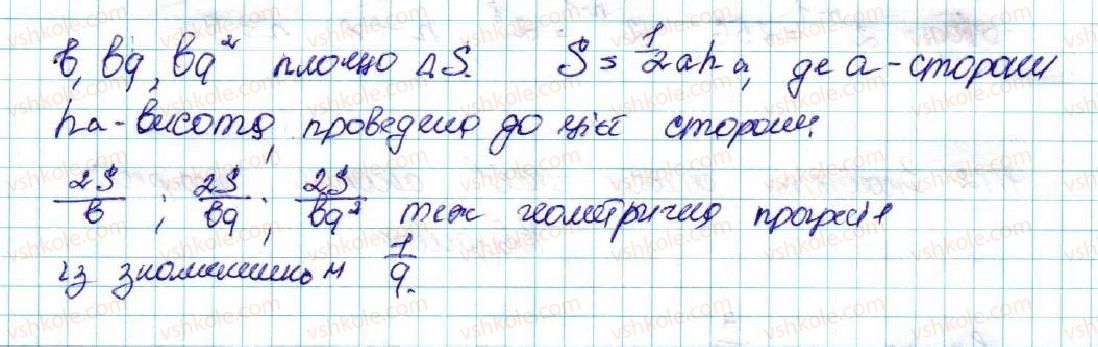 b, bq, bq² площа ΔS. S = 1/2 a hₐ, де a - сторони
hₐ - висота, проведена до цієї сторони.
2S/b ; 2S/bq ; 2S/bq² теж геометрична прогресія
із знаменником 1/q.